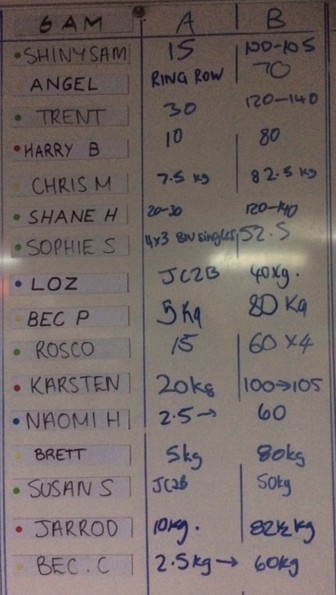 6 AM A B
SHINYSAM 15 100-105
ANGEL RING ROW 70
TRENT 30 120-140
HARRY B 10 80
CHRIS M 7.5 kg 82.5 kg
SHANE H 20-30 120-140
SOPHIE S 4x3 BW singles 52.5
LOZ JC2B 40kg.
BEC P 5kg 80 kg
ROSCO 15 60 x4
KARSTEN 20kg 100→105
NAOMI H 2.5→ 60
BRETT 5kg 80kg
SUSAN S JC2B 50kg
JARROD 10kg. 82½ kg
BEC.C 2.5kg→ 60kg